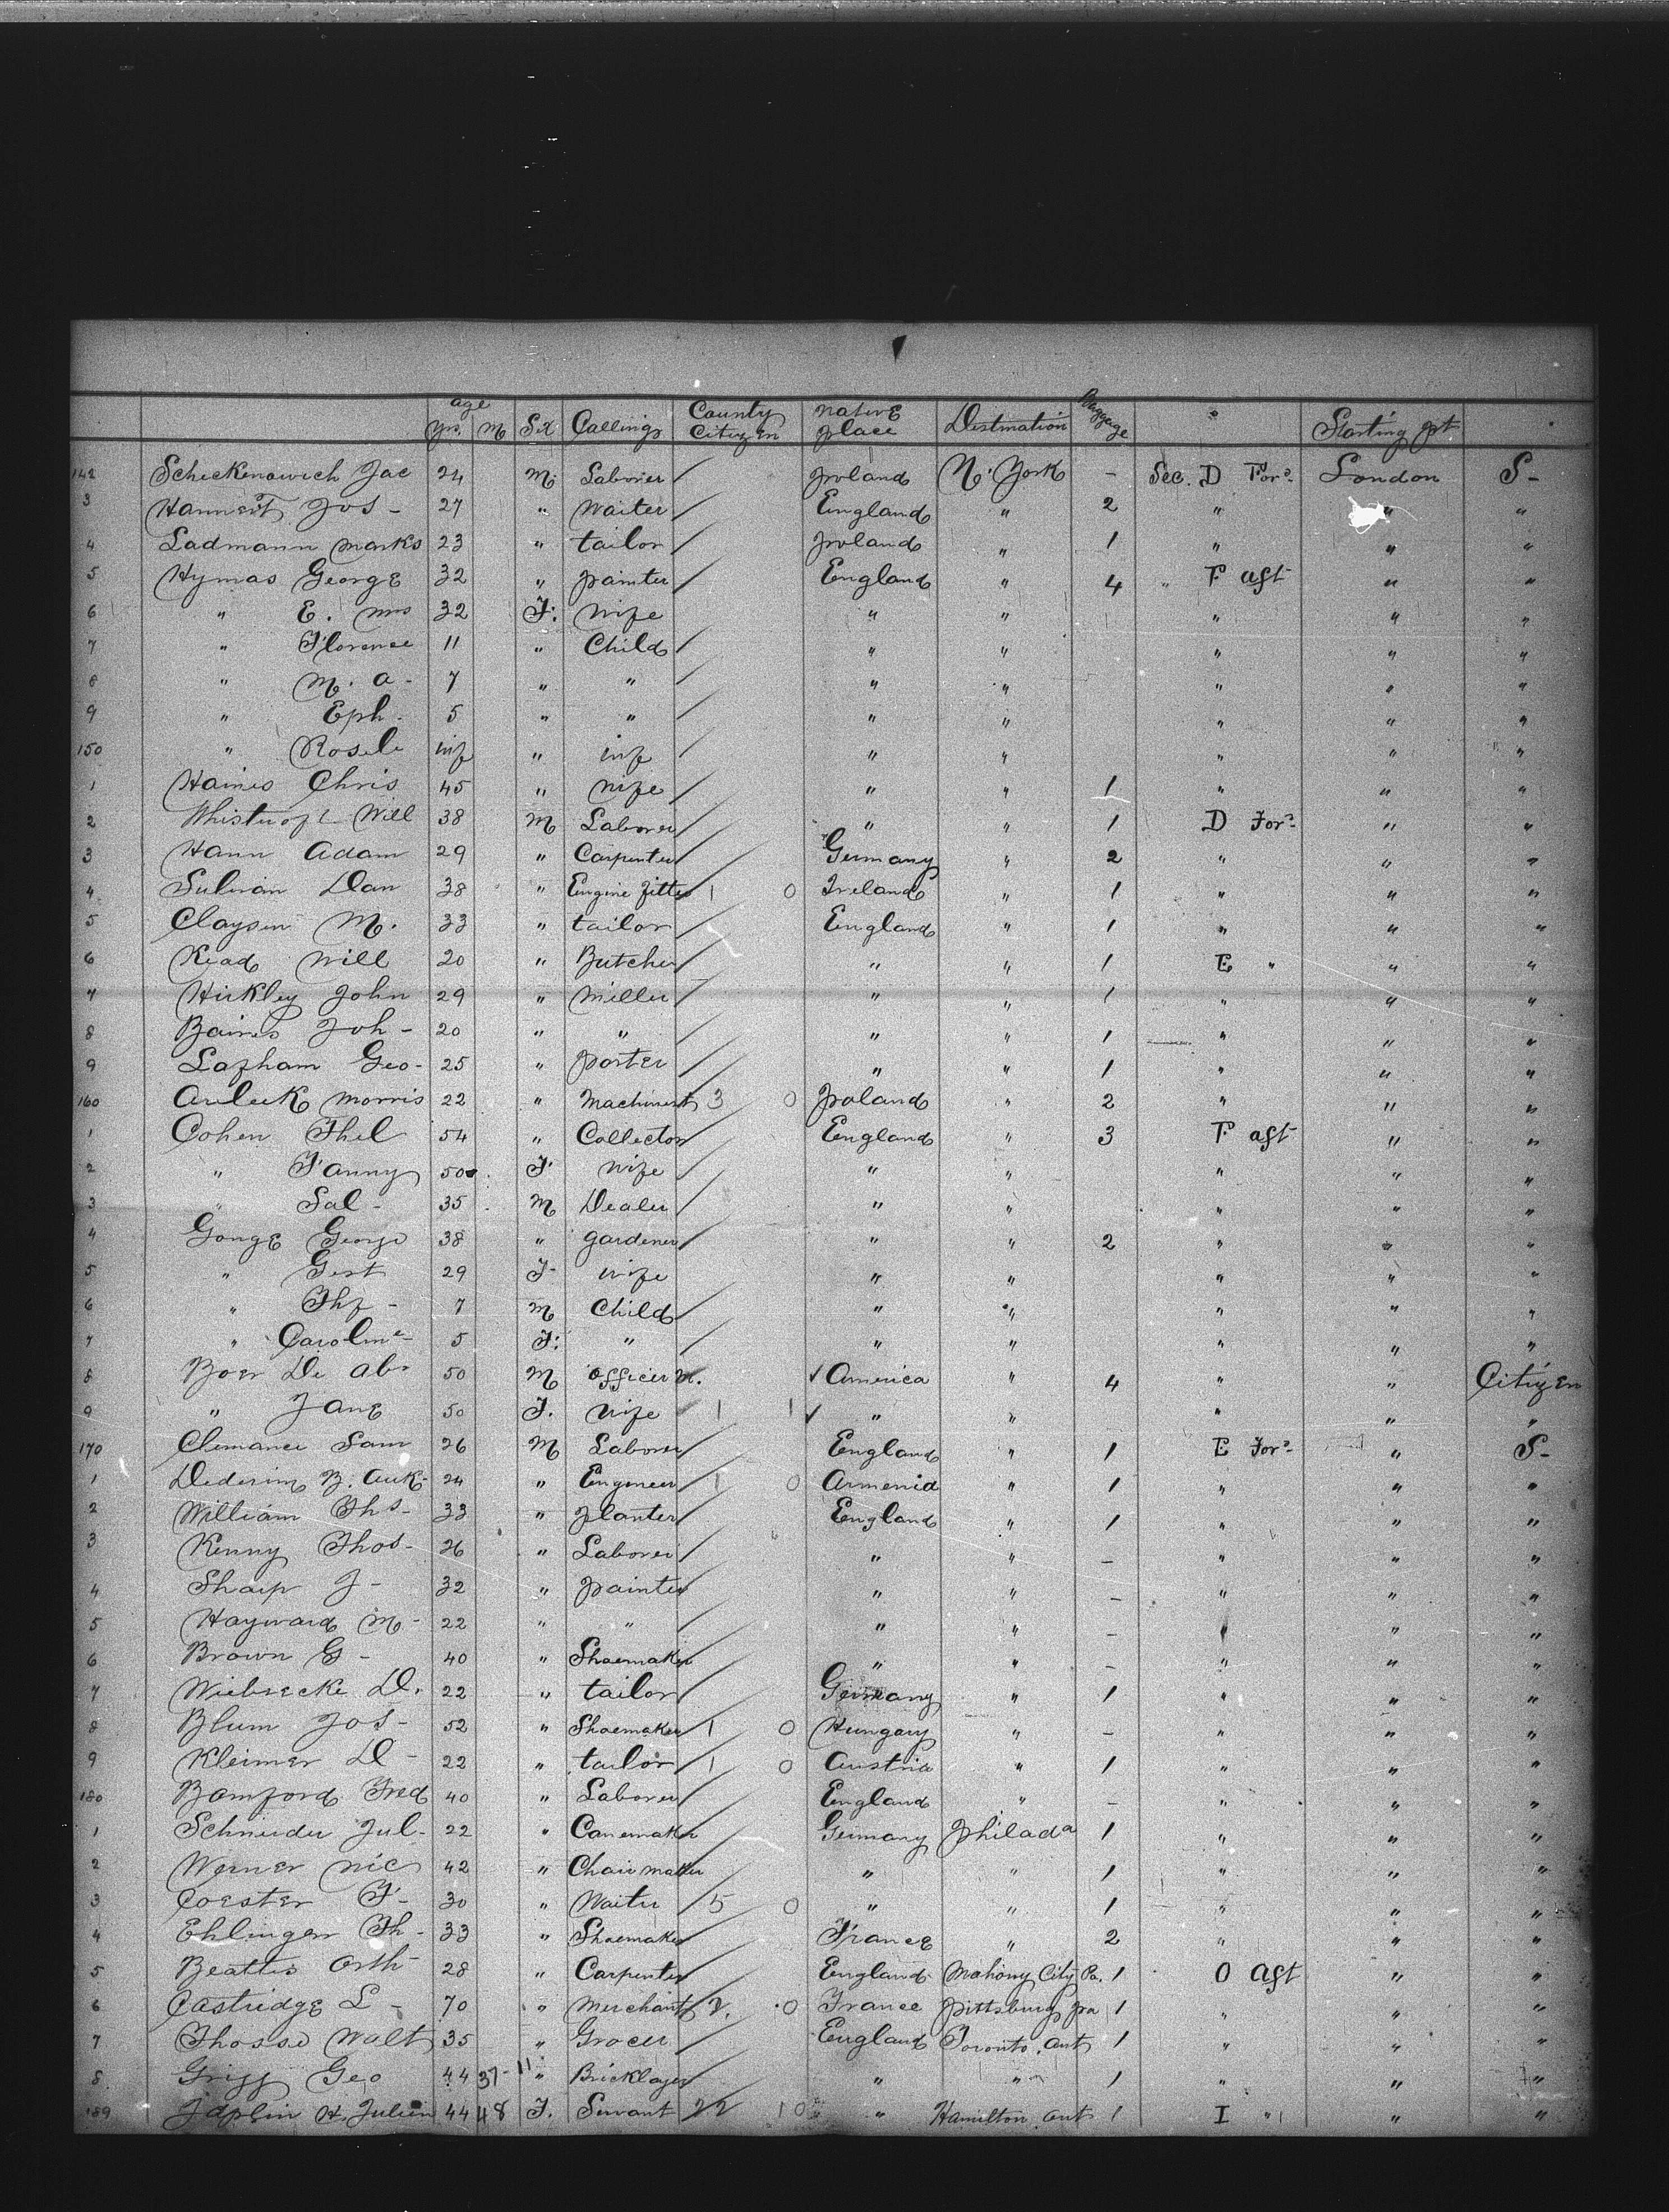 age Yrs. M Sex Callings County Citizen native place Destination Baggage Starting pt
142 Scheckenowich Jac 24 M. Laborer / Poland N. York – Sec. D For. London S-
3 Hannert Jos - 27 " Waiter / England " 2 " " "
4 Ladmann Marks 23 " tailor / Poland " 1 " " "
5 Hymas George 32 " painter / England " 4 " F aft " "
6 " E. mrs 32 F. Wife " " " " "
7 " Florence 11 " Child / " " " " "
8 " M. a - 7 " " / " " " " "
9 " Eph. 5 " " / " " " " "
150 " Rosele inf " inf / " " " " "
1 Haines Chris 45 " Wife / " " 1 " " "
2 Will 38 M Laborer / " " 1 D For. " "
3 Hann Adam 29 " Carpenter / Germany " 2 " " "
4 Sulivan Dan 38 " Engine fitter / 1 0 Ireland " 1 " " "
5 Claysen M. 33 " tailor / England " 1 " " "
6 Read Will 20 " Butcher / " " 1 E " " "
7 Hirkley John 29 " Miller / " " 1 " " "
8 Baines Joh - 20 " " / " " 1 " " "
9 Lapham Geo - 25 " porter / " " 1 " " "
160 Morris 22 " Machinist / 3 0 Poland " 2 " " "
1 Cohen Phil 54 " Collector / England " 3 F aft " "
2 " Fanny 50 F Wife / " " " " "
3 " Sal - 35 M Dealer / " " " " "
4 Gonge George 38 " gardener / " " 2 " " "
5 " Gert 29 F Wife " " " " "
6 " - 7 M Child / " " " " "
7 " Caroline - 5 F. " / " " " " "
8 Boer De Ab. 50 M officer America " 4 " " Citizen
9 " Jane 50 F. Wife 1 1 " " " " "
170 Clemance Sam 26 M Laborer / England " 1 E For. " S-
1 24 " Engineer / 1 0 Armenia " 1 " " "
2 William Ths - 33 " planter / England " 1 " " "
3 Kenny Thos - 26 " Laborer / " " – " " "
4 Sharp J - 32 " painter / " " – " " "
5 Hayward M - 22 " " / " " – " " "
6 Brown G - 40 " Shoemaker / " " – " " "
7 Wiebsecke D. 22 " tailor / Germany " 1 " " "
8 Blum Jos - 52 " Shoemaker / 1 0 Hungary " – " " "
9 Kleimer D - 22 " tailor / 1 0 Austria " 1 " " "
180 Bamford Fred 40 " Laborer / England " – " " "
1 Schneider Jul - 22 " Canemaker / Germany Philada 1 " " "
2 Werner Nic 42 " Chair maker / " " 1 " " "
3 Coester F - 30 " Waiter / 5 0 " " 1 " " "
4 Ehlinger Th - 33 " Shoemaker / France " 2 " " "
5 Beattis Orth 28 " Carpenter / England Mahony City Pa. 1 O aft " "
6 Castridge L - 70 " Merchant / 2. 0 France Pittsburg pa 1 " " "
7 Thosse Walt 35 " Grocer / England Toronto, Ont 1 " " "
8 Grigg Geo 44 37 - 11 " Bricklayer / " " 1 " " "
189 H. Julien 44 48 F. Servant 22 10 " Hamilton, Ont 1 I " " "